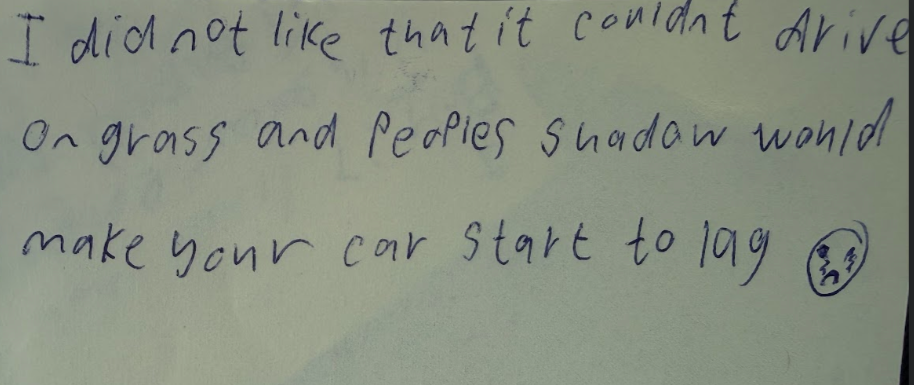 I did not like that it couldnt drive
on grass and Peoples shadow would
make your car start to lag